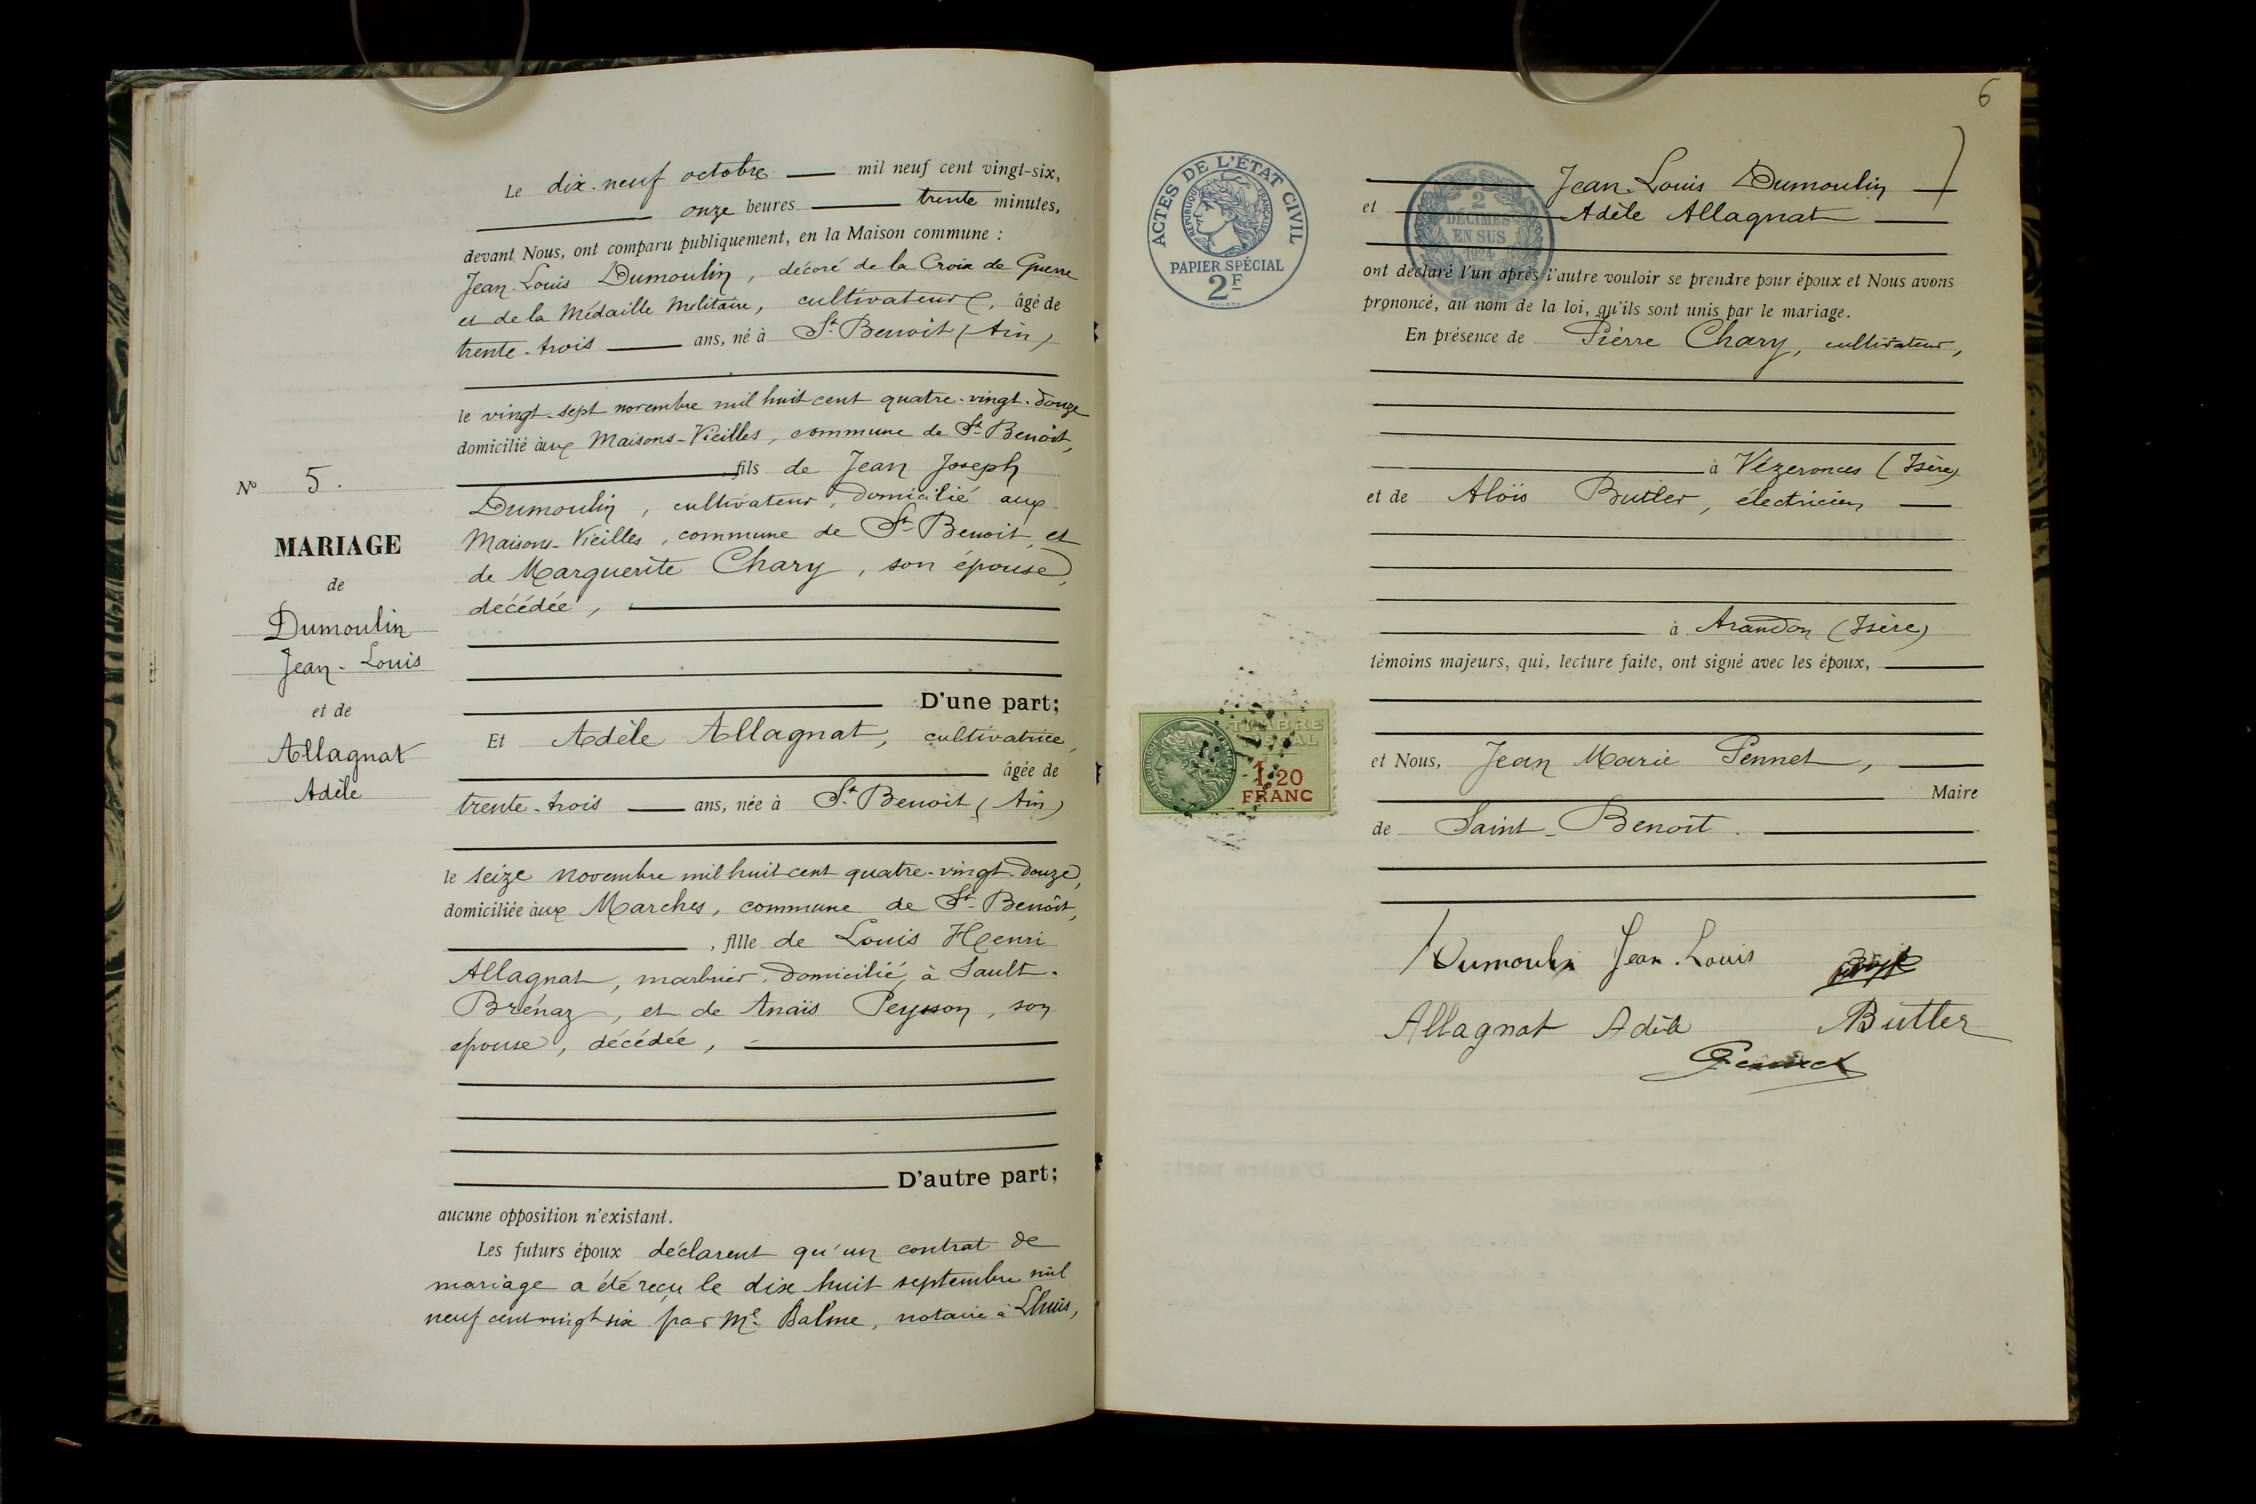 Le dix-neuf octobre mil neuf cent vingt-six,
onze heures trente minutes,
devant Nous, ont comparu publiquement, en la Maison commune :
Jean-Louis Dumoulin, décoré de la Croix de Guerre
et de la Médaille Militaire, cultivateur, âgé de
trente-trois ans, né à St Benoit (Ain)
le vingt-sept novembre mil huit cent quatre-vingt-douze
domicilié aux Maisons-Vieilles, commune de St Benoit,
fils de Jean Joseph
Dumoulin, cultivateur, domicilié aux
Maisons-Vieilles, commune de St Benoit, et
de Marguerite Chary, son épouse,
décédée,
D'une part;
Et Adèle Allagnat, cultivatrice,
âgée de
trente-trois ans, née à St Benoit (Ain)
le seize novembre mil huit cent quatre-vingt-douze,
domiciliée aux Marches, commune de St Benoit,
, fille de Louis Henri
Allagnat, marbrier, domicilié à Sault-
Brénaz, et de Anaïs Peysson, son
épouse, décédée,
D'autre part;
aucune opposition n'existant.
Les futurs époux déclarent qu'un contrat de
mariage a été reçu le dix huit septembre mil
neuf cent vingt six par Me Balme, notaire à Lhuis,
No 5.
MARIAGE
de
Dumoulin
Jean-Louis
et de
Allagnat
Adèle
6
ACTES DE L'ÉTAT CIVIL
RÉPUBLIQUE FRANÇAISE
PAPIER SPÉCIAL
2F
2
DÉCIMES
EN SUS
1924
Jean-Louis Dumoulin
et Adèle Allagnat
ont déclaré l'un après l'autre vouloir se prendre pour époux et Nous avons
prononcé, au nom de la loi, qu'ils sont unis par le mariage.
En présence de Pierre Chary, cultivateur,
à Vézeronces (Isère)
et de Aloïs Butler, électricien
à Arandon (Isère)
témoins majeurs, qui, lecture faite, ont signé avec les époux,
TIMBRE
FISCAL
1,20
FRANC
et Nous, Jean Marie Pennet,
Maire
de Saint-Benoit.
Dumoulin Jean-Louis
Allagnat Adèle Butler
Pennet